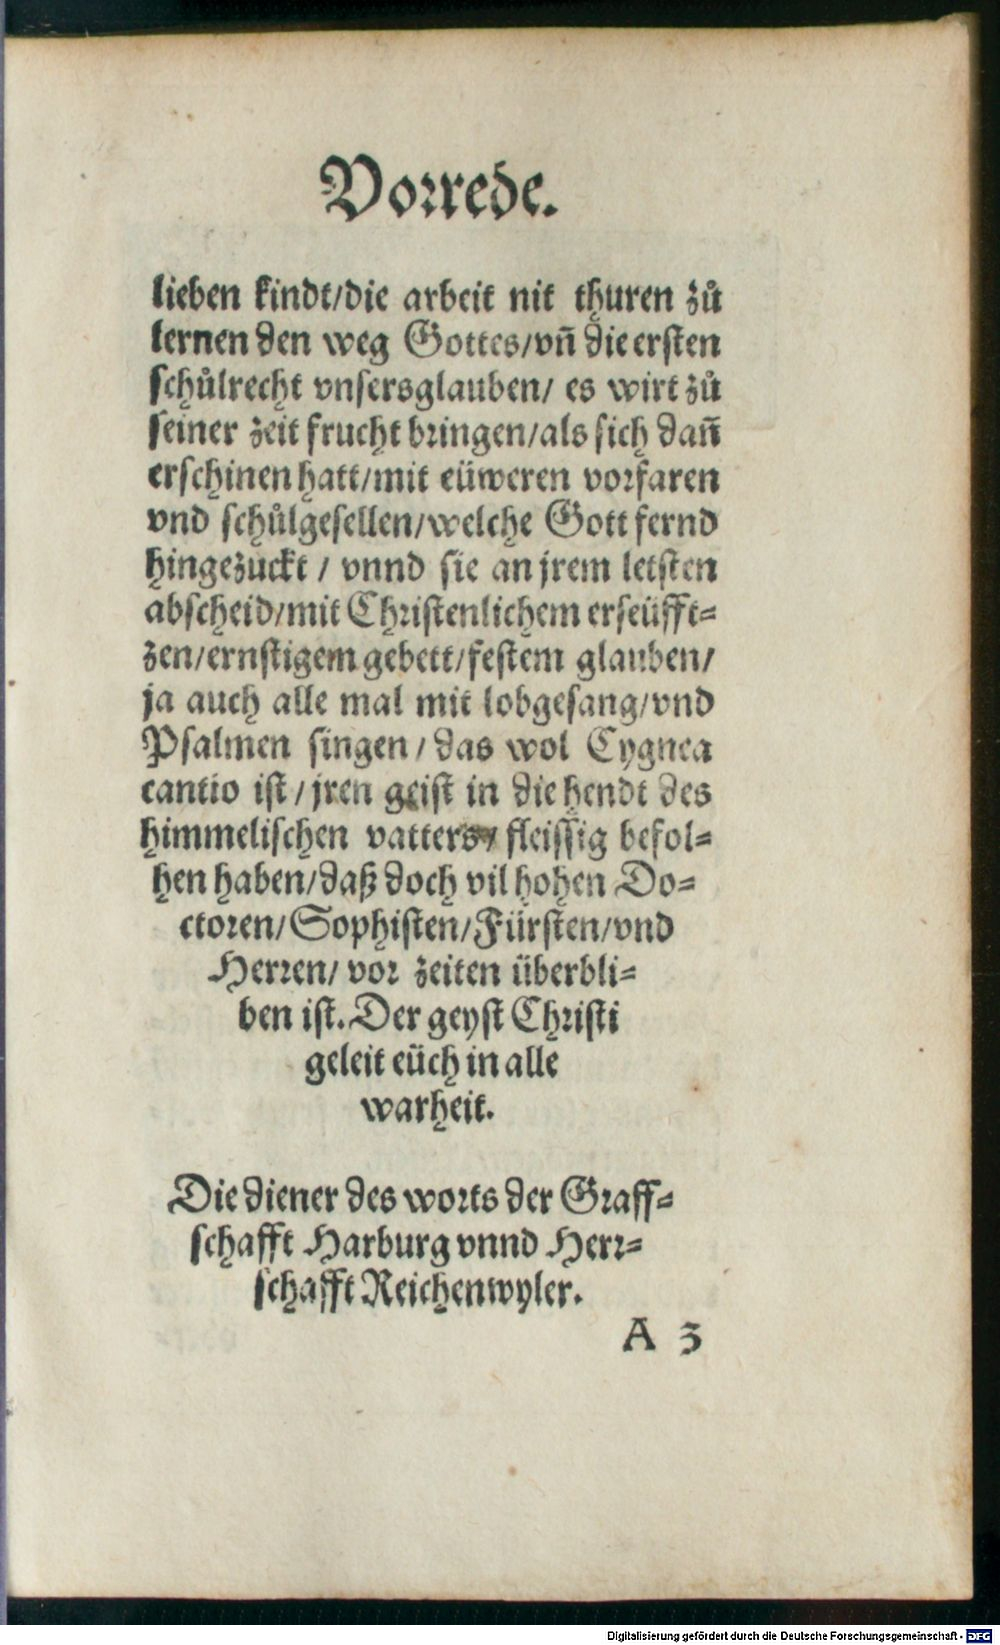 Vorrede.
lieben kindt/die arbeit nit thuren zů
lernen den weg Gottes/vñ die ersten
schůlrecht vnsersglauben/ es wirt zů
seiner zeit frucht bringen/als sich dañ
erschinen hatt/mit eüweren vorfaren
vnd schůlgesellen/welche Gott fernd
hingezuckt / vnnd sie an jrem letsten
abscheid/mit Christenlichem erseüfft-
zen/ernstigem gebett/festem glauben/
ja auch alle mal mit lobgesang/vnd
Psalmen singen / das wol Cygnea
cantio ist / jren geist in die hendt des
himmelischen vatters/ fleissig befol-
hen haben/daß doch vil hohen Do-
ctoren/Sophisten/Fürsten/vnd
Herren/ vor zeiten überbli-
ben ist. Der geyst Christi
geleit eüch in alle
warheit.
Die diener des worts der Graff-
schafft Harburg vnnd Herr-
schafft Reichenwyler.
A 3
Digitalisierung gefördert durch die Deutsche Forschungsgemeinschaft - DFG